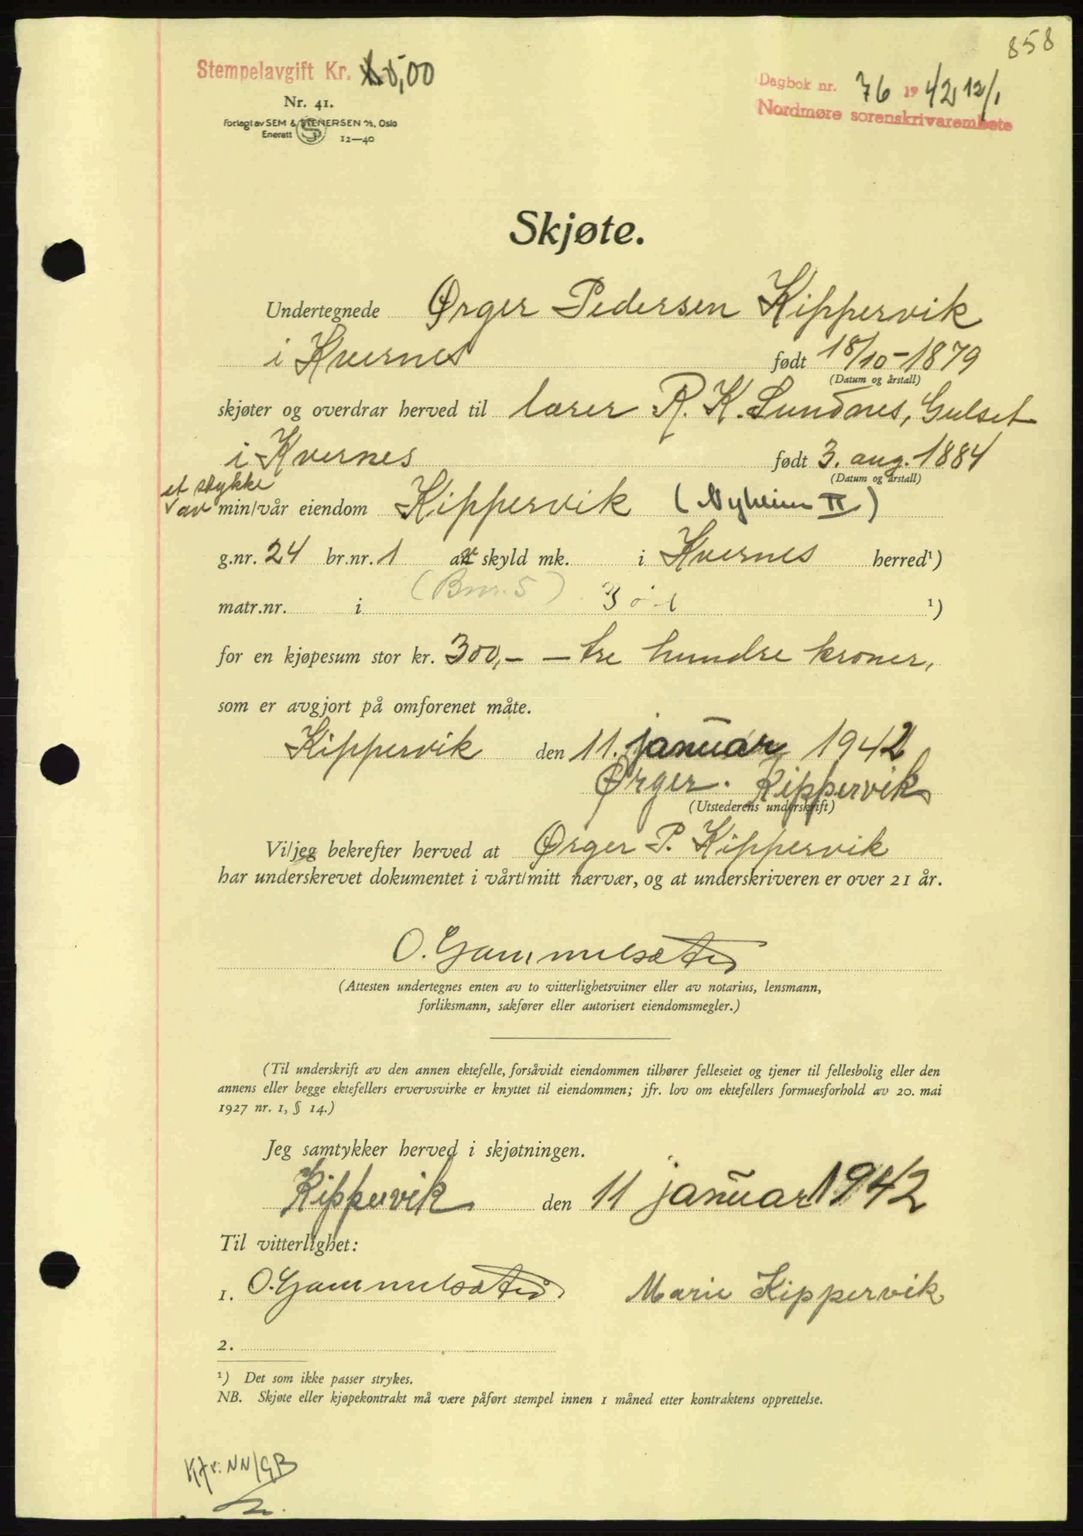 858
Stempelavgift Kr. 5,00
Dagbok nr. 76 1942 12/1
Nordmøre sorenskrivarembete
Nr. 41.
Forlagt av SEM & STENERSEN A/S, Oslo
Enerett 12—40
Skjøte.
Undertegnede Ørger Pedersen Kippervik
i Kvernes født 18/10-1879
(Datum og årstall)
skjøter og overdrar herved til lærer R. K. Sundnes, Gulset
i Kvernes født 3. aug. 1884
(Datum og årstall)
et stykke
av min/vår eiendom Kippervik (Nyheim II)
g.nr. 24 br.nr. 1 av skyld mk. i Kvernes herred¹)
(Bnr. 5)
matr.nr. i ¹)
for en kjøpesum stor kr. 300,- - tre hundre kroner,
som er avgjort på omforenet måte.
Kippervik den 11. januar 1942
Ørger. Kippervik
(Utstederens underskrift)
Vi/jeg bekrefter herved at Ørger P. Kippervik
har underskrevet dokumentet i vårt/mitt nærvær, og at underskriveren er over 21 år.
O. Gammelsæter
(Attesten undertegnes enten av to vitterlighetsvitner eller av notarius, lensmann,
forliksmann, sakfører eller autorisert eiendomsmegler.)
(Til underskrift av den annen ektefelle, forsåvidt eiendommen tilhører felleseiet og tjener til fellesbolig eller den
annens eller begge ektefellers ervervsvirke er knyttet til eiendommen; jfr. lov om ektefellers formuesforhold av 20. mai
1927 nr. 1, § 14.)
Jeg samtykker herved i skjøtningen.
Kippervik den 11 januar 1942
Til vitterlighet:
1. O. Gammelsæter Marie Kippervik
2.
¹) Det som ikke passer strykes.
NB. Skjøte eller kjøpekontrakt må være påført stempel innen 1 måned etter kontraktens opprettelse.
Kfr: NN/GB